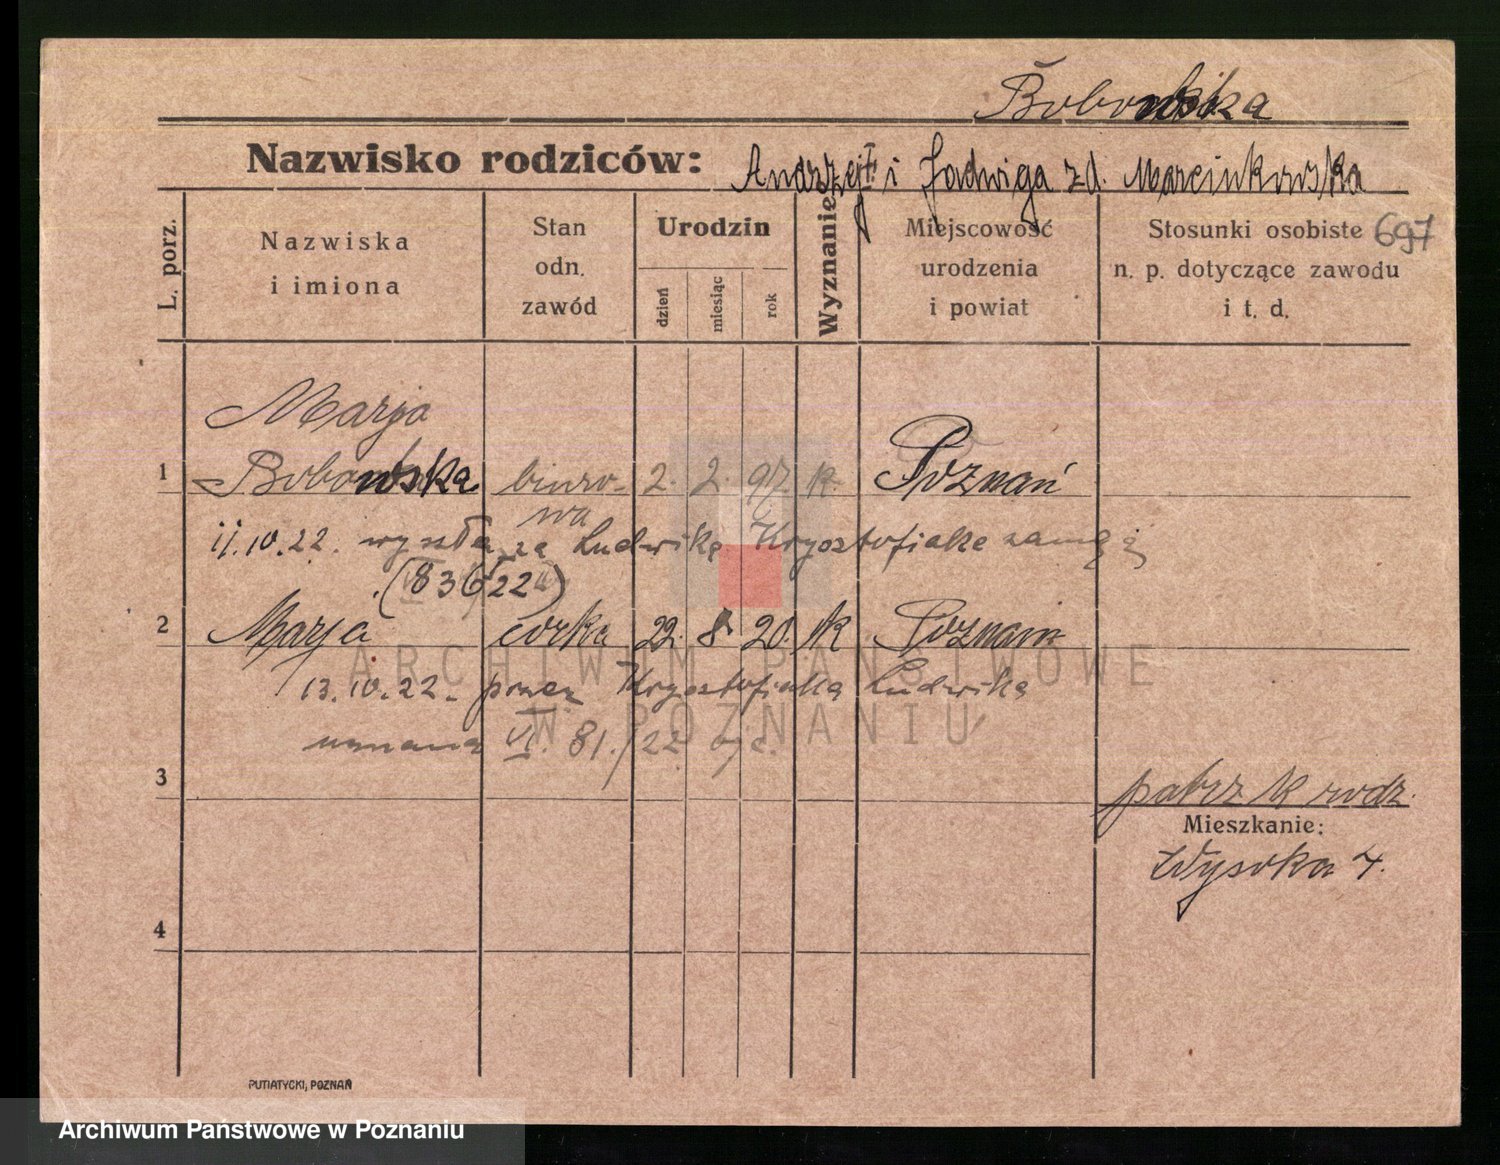 Bobowska
Nazwisko rodziców: Andrzej † i Jadwiga zd. Marcinkowska
697
L. porz.
Nazwiska i imiona
Stan odn. zawód
Urodzin
dzień
miesiąc
rok
Wyznanie
Miejscowość urodzenia i powiat
Stosunki osobiste n. p. dotyczące zawodu i t. d.
Marja
1 Bobowska biuro- 2. 2. 97. k. Poznań
wa
11.10.22. wyszła za Ludwika Krysztofiaka zamąż
(836/22)
2 Marja córka 22. 8. 20. k Poznań
13.10.22. przez Krysztofiaka Ludwika
uznana VI. 81./22
3
patrz K rodz.
Mieszkanie:
Wysoka 4.
4
PUTIATYCKI, POZNAŃ
ARCHIWUM PAŃSTWOWE
W POZNANIU
Archiwum Państwowe w Poznaniu